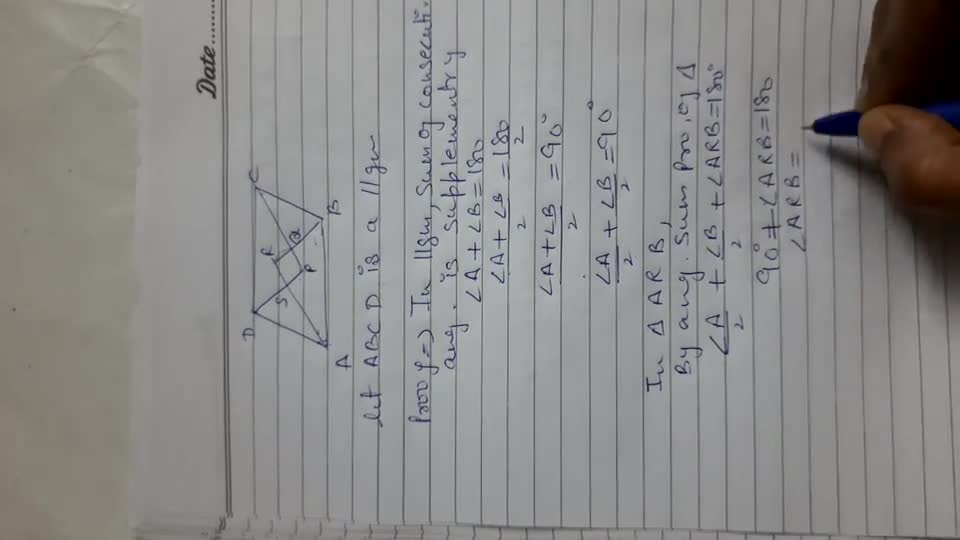 Date.......
D C
S R Q
P
A B
let ABCD is a ||gm
Proof => In ||gm, sum of consecuti
ang. is supplementry
∠A + ∠B = 180
∠A + ∠B / 2 = 180 / 2
∠A + ∠B / 2 = 90°
∠A / 2 + ∠B / 2 = 90°
In Δ ARB,
By ang. sum pro. of Δ
∠A / 2 + ∠B / 2 + ∠ARB = 180°
90° + ∠ARB = 180
∠ARB =